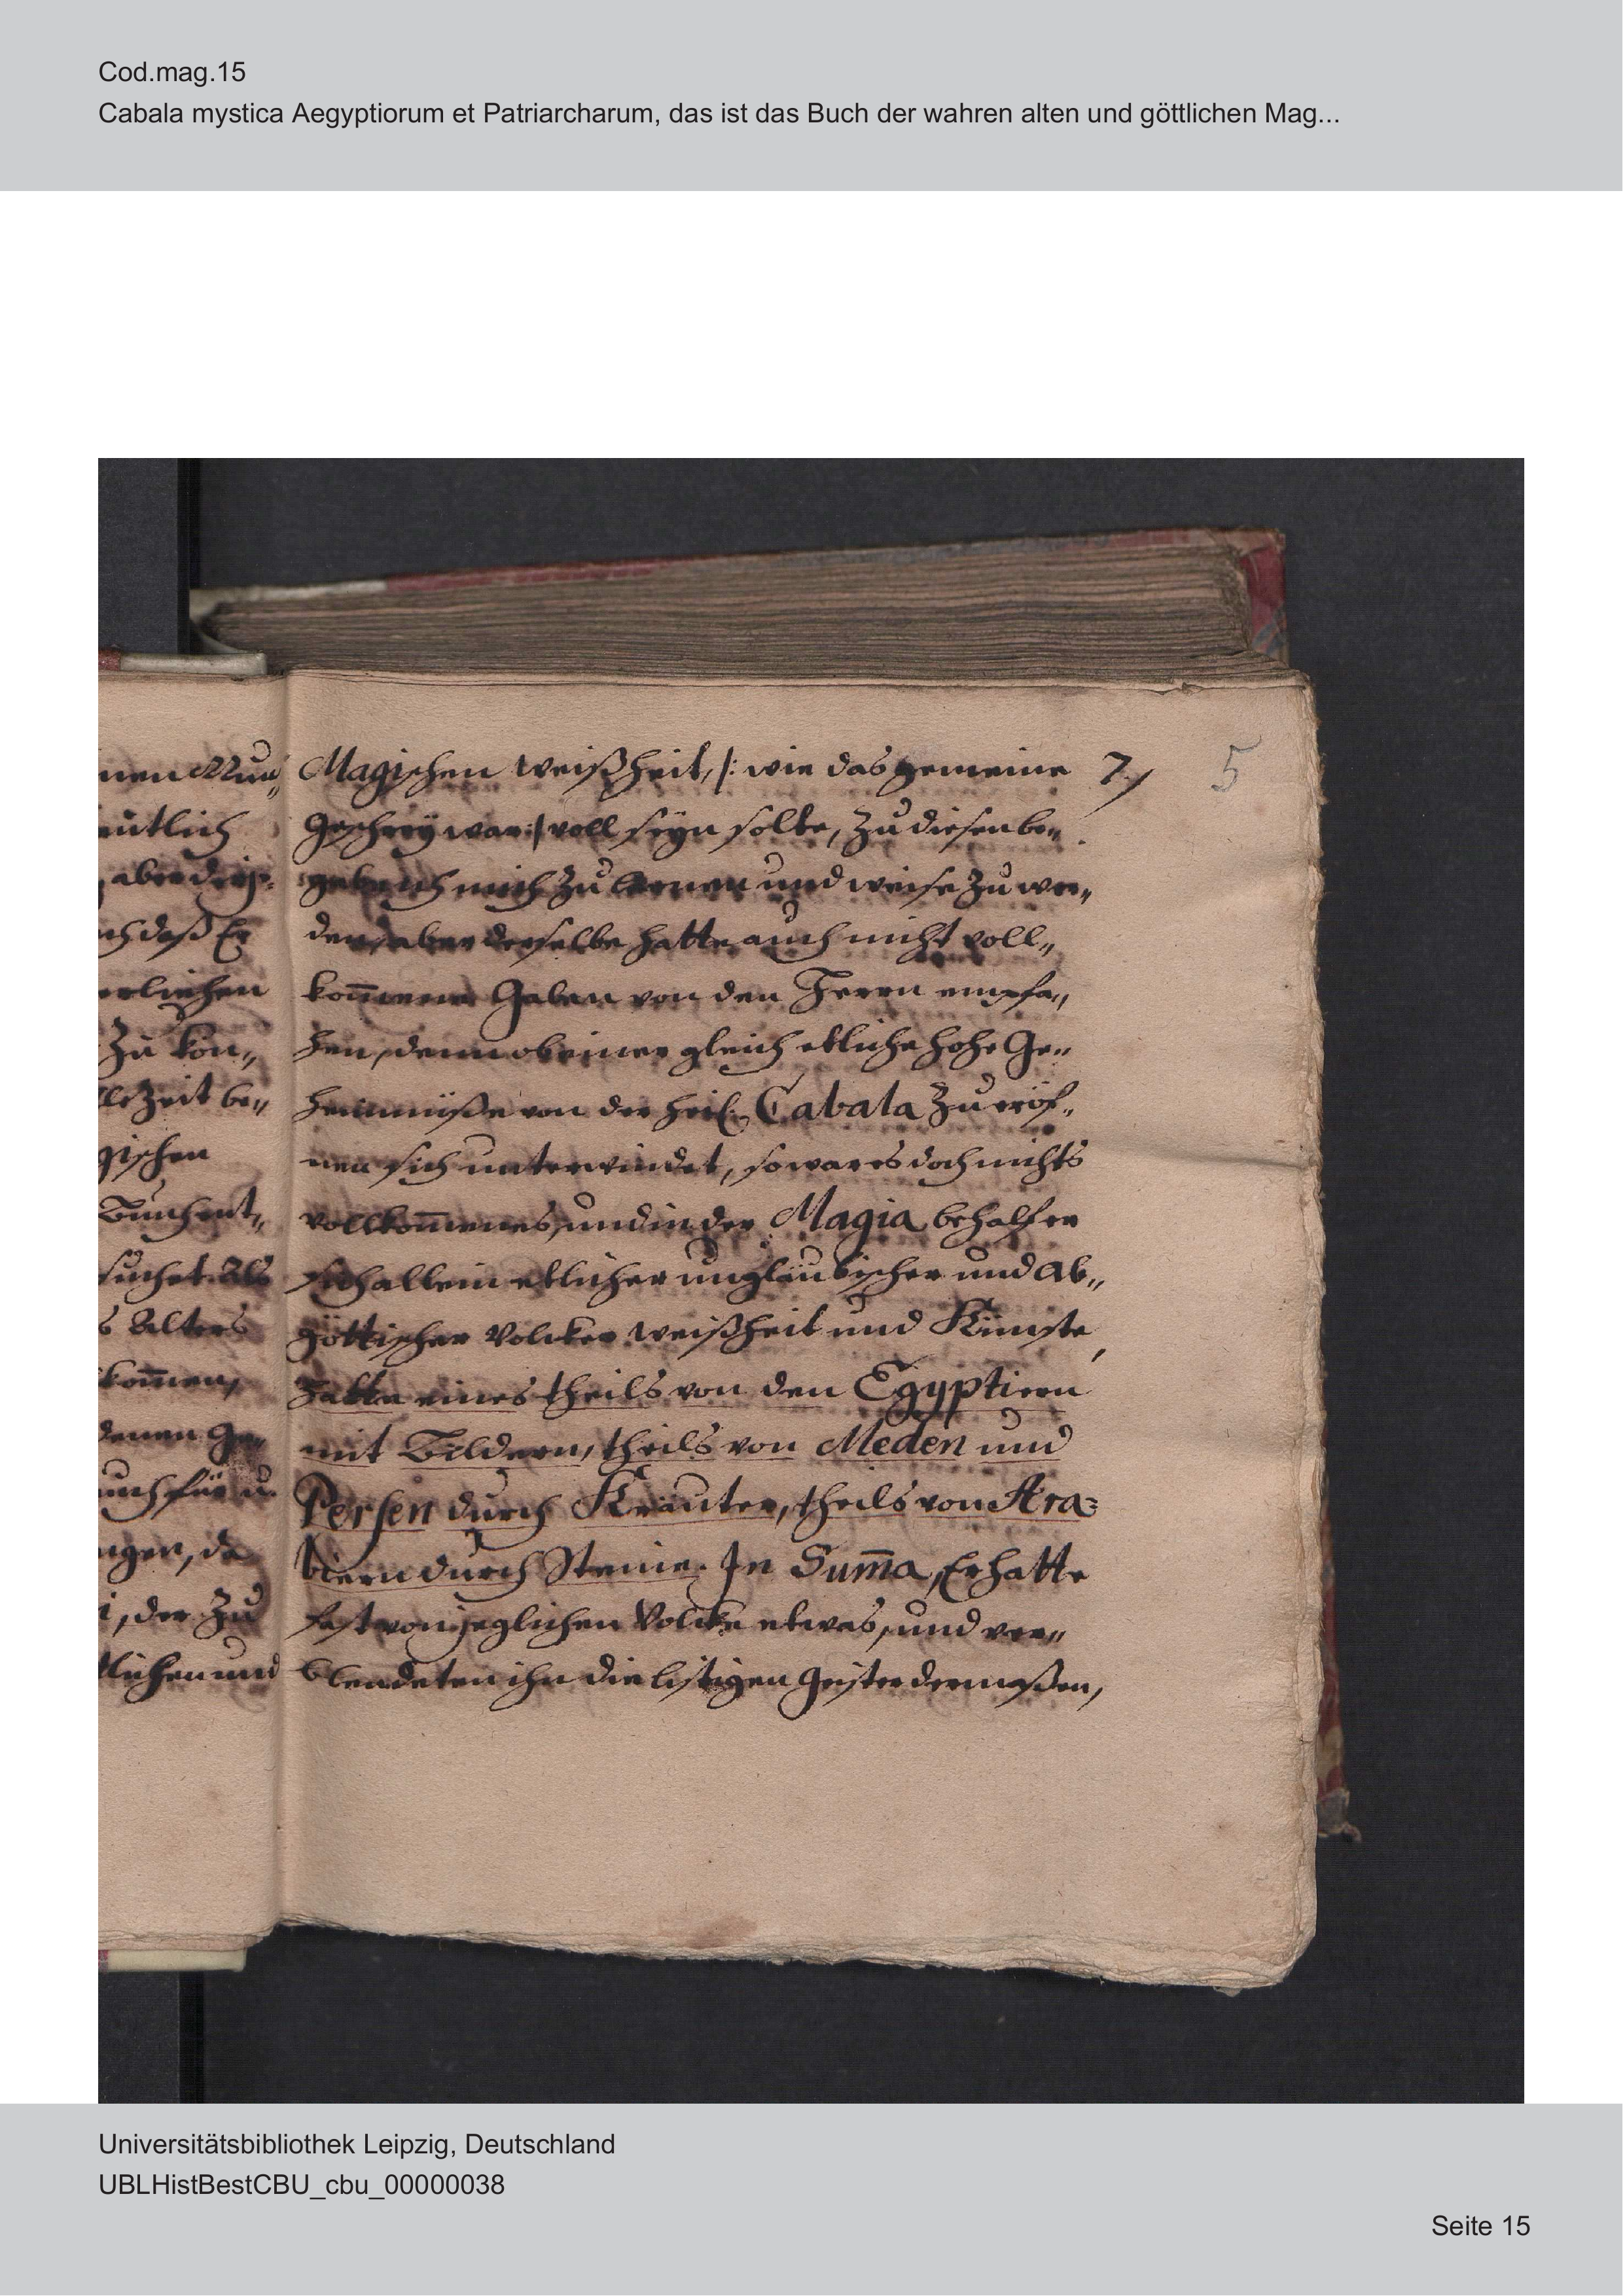 Cod.mag.15
Cabala mystica Aegyptiorum et Patriarcharum, das ist das Buch der wahren alten und göttlichen Mag...
7.
5
Magischen weißheit, /: wie das gemeine
geschreÿ war :/ voll seyn solte, zu diesen be„
gabe ich mich zu lernen und weise zu wer„
den, aber derselbe hatte auch nicht voll„
kom̄ene Gaben von den Herrn empfa„
hen, denn ob einer gleich etliche hohe Ge„
heimnüße von der heil. Cabala zu eröf„
nen sich unterwindet, so war es doch nichts
vollkom̄enes, und in der Magia behalf er
sich allein etlicher ungläubischer und Ab„
göttischer Volcker weißheit und Künste,
hatte eines theils von den Egyptiern
mit Bildern, theils von Meden und
Persen durch Kräuter, theils von Ara=
biern durch Steine. In Sum̄a, Er hatte
fast von jeglichen Volcke etwas, und ver„
blendeten ihn die listigen Geister dermaßen,
utlich
ch daß Er
erlichen
zu kön„
lezeit be„
gischen
Buch ent„
suchet. Als
s Alters
kom̄en,
denen Ge„
uch für u.
ngen, da
i, der zu
tlichen und
Universitätsbibliothek Leipzig, Deutschland
UBLHistBestCBU_cbu_00000038
Seite 15